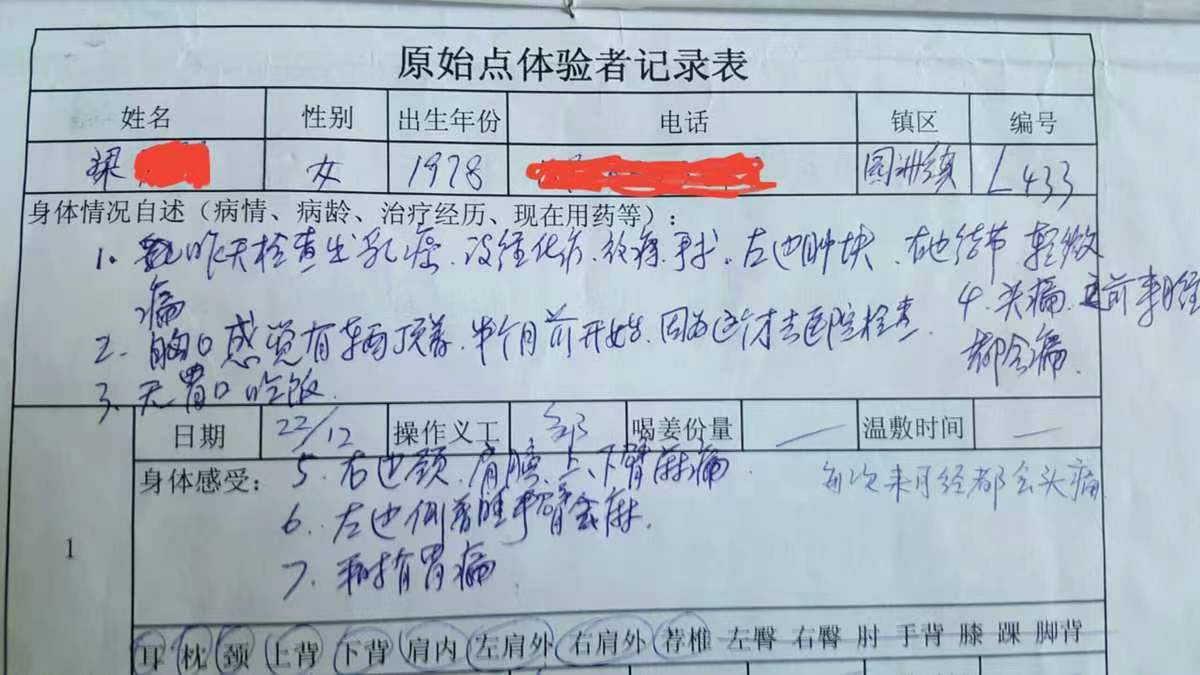 原始点体验者记录表
姓名 性别 出生年份 电话 镇区 编号
梁 女 1978 园洲镇 L433
身体情况自述（病情、病龄、治疗经历、现在用药等）：
1. 昨天检查出乳癌、没经化疗、放疗、手术、左边肿块、右边结节、轻微
痛
2. 胸口感觉有东西顶着、半个月前开始、因为这个才去医院检查
3、无胃口吃饭
4. 头痛、来月经前
都会痛
日期 22/12 操作义工 喝姜份量 — 温敷时间 —
身体感受： 5. 右边颈、肩胰、上、下臂麻痛
每次来月经都会头痛
6. 左边侧着睡手臂会麻.
1
7. 有胃痛
耳 枕 颈 上背 下背 肩内 左肩外 右肩外 荐椎 左臀 右臀 肘 手背 膝 踝 脚背